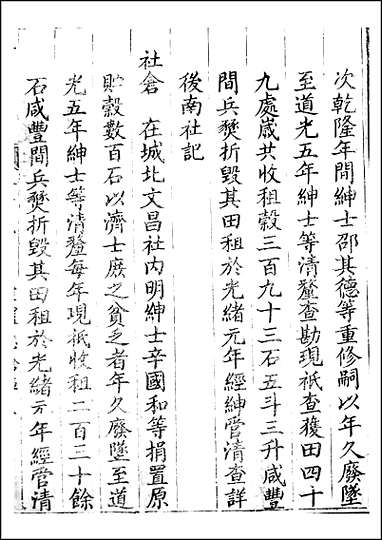 次乾隆年間紳士邵其德等重修嗣以年久廢墜
至道光五年紳士等清釐查勘現祇查獲田四十
九處歲共收租穀三百九十三石五斗三升咸豐
間兵燹折毀其田租於光緒元年經紳管清查詳
後南社記
社倉　在城北文昌社內明紳士辛國和等捐置原
貯穀數百石以濟士庶之貧乏者年久廢墜至道
光五年紳士等清釐每年現祇收租二百三十餘
石咸豐間兵燹折毀其田租於光緒元年經管清